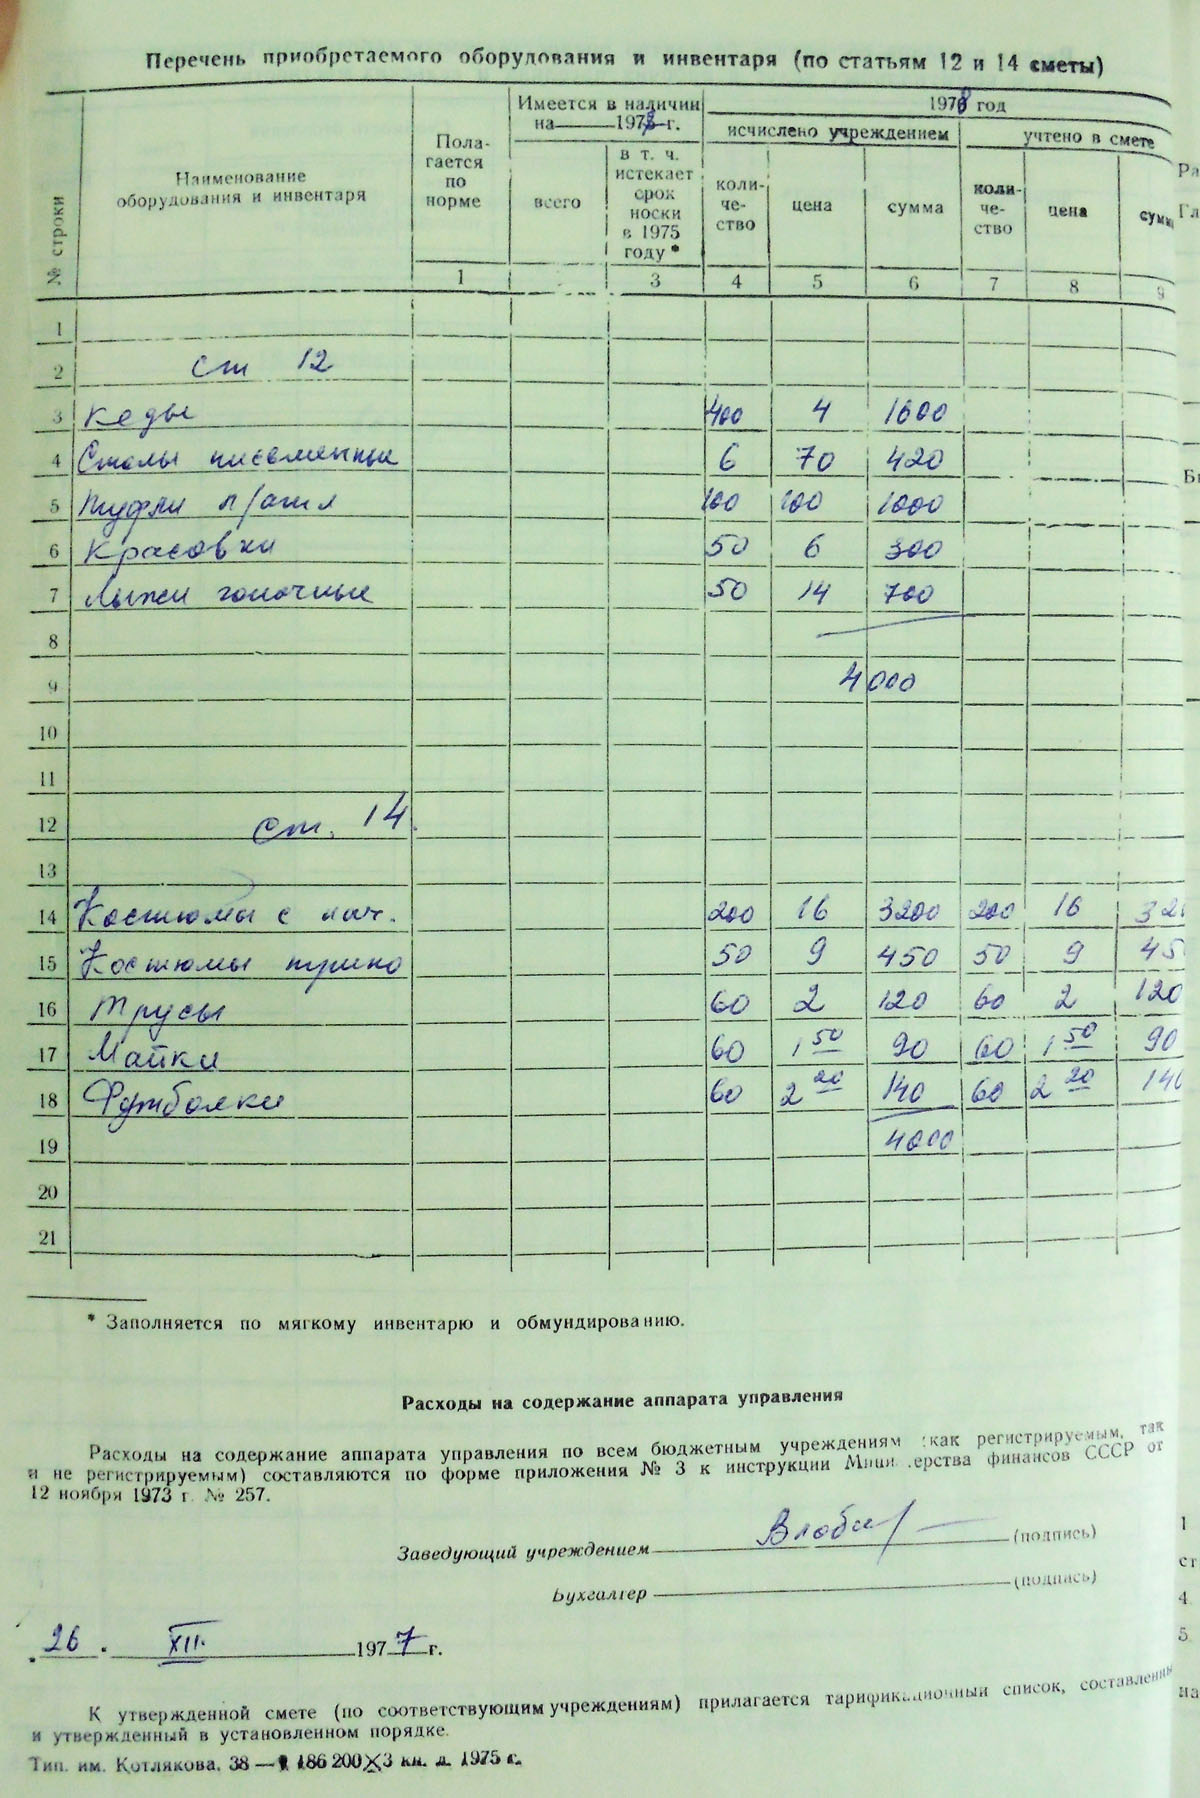 Перечень приобретаемого оборудования и инвентаря (по статьям 12 и 14 сметы)
№ строки
Наименование оборудования и инвентаря
Пола-гается по норме
Имеется в наличии на 1978 г.
всего
в т. ч. истекает срок носки в 1975 году *
1978 год
исчислено учреждением
учтено в смете
коли-че-ство
цена
сумма
коли-че-ство
цена
сумм
1 3 4 5 6 7 8 9
1
2 ст 12
3 Кеды 400 4 1600
4 Столы письменные 6 70 420
5 Туфли л/атл 100 100 1000
6 Красовки 50 6 300
7 Лыжи гоночные 50 14 700
8
9 4000
10
11
12 ст. 14
13
14 Костюмы с нач. 200 16 3200 200 16 320
15 Костюмы 50 9 450 50 9 45
16 Трусы 60 2 120 60 2 120
17 Майки 60 1 50 90 60 1 50 90
18 Футболки 60 2 20 140 60 2 20 140
19 4000
20
21
* Заполняется по мягкому инвентарю и обмундированию.
Расходы на содержание аппарата управления
Расходы на содержание аппарата управления по всем бюджетным учреждениям (как регистрируемым, так
и не регистрируемым) составляются по форме приложения № 3 к инструкции Министерства финансов СССР от
12 ноября 1973 г. № 257.
Заведующий учреждением (подпись)
Бухгалтер (подпись)
26. XII. 1977 г.
К утвержденной смете (по соответствующим учреждениям) прилагается тарификационный список, составленны
и утвержденный в установленном порядке.
Тип. им. Котлякова. 38— 186 200×3 кн. л. 1975 г.